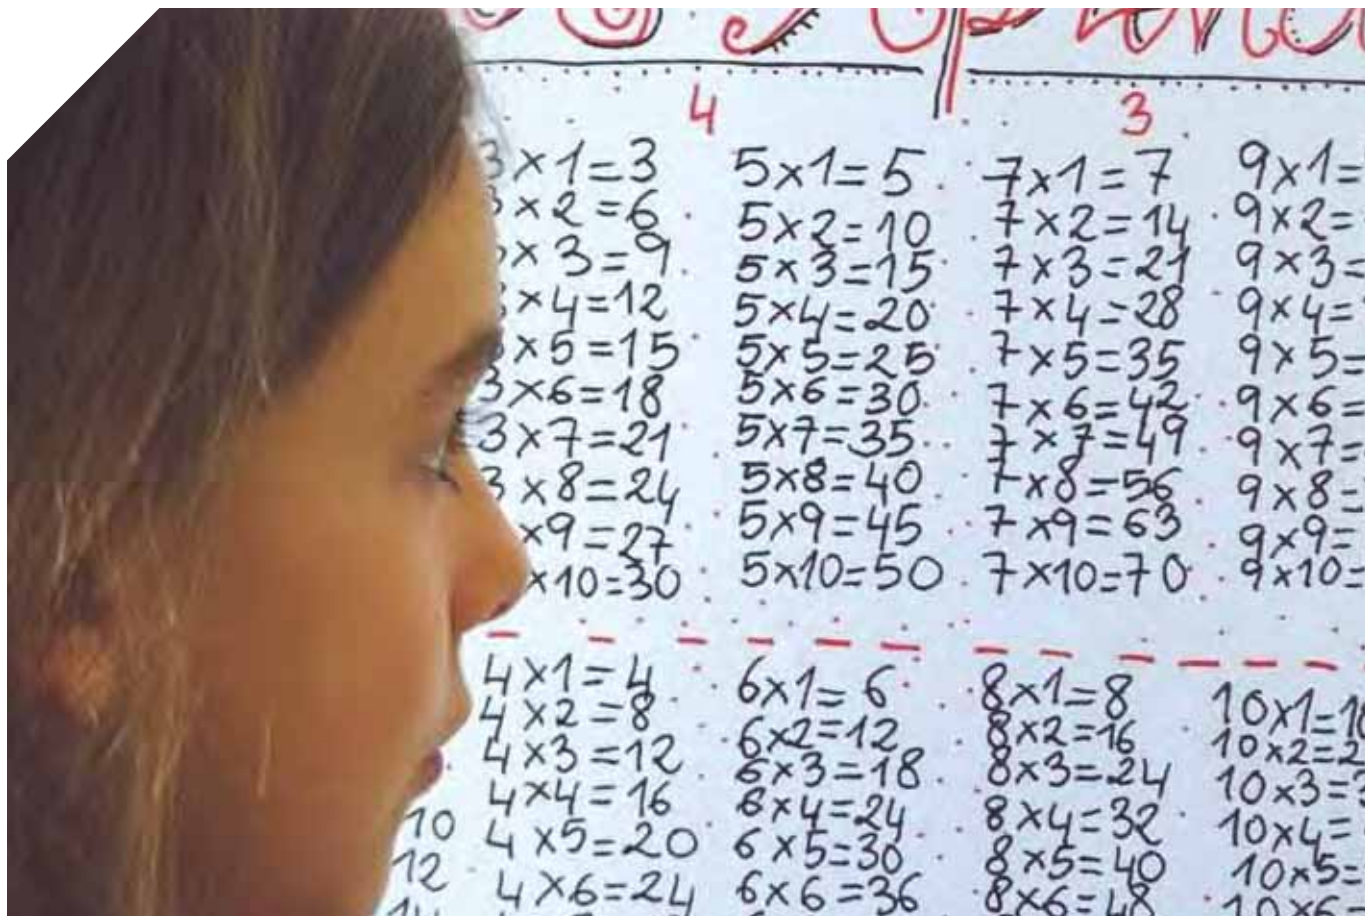 4
3
3×1=3
3×2=6
×3=9
3×4=12
×5=15
3×6=18
3×7=21
3×8=24
×9=27
×10=30
5×1=5
5×2=10
5×3=15
5×4=20
5×5=25
5×6=30
5×7=35
5×8=40
5×9=45
5×10=50
7×1=7
7×2=14
7×3=21
7×4=28
7×5=35
7×6=42
7×7=49
7×8=56
7×9=63
7×10=70
9×1=
9×2=
9×3=
9×4=
9×5=
9×6=
9×7=
9×8=
9×9=
9×10=
10
12
14
4×1=4
4×2=8
4×3=12
4×4=16
4×5=20
4×6=24
6×1=6
6×2=12
6×3=18
6×4=24
6×5=30
6×6=36
8×1=8
8×2=16
8×3=24
8×4=32
8×5=40
8×6=48
10×1=10
10×2=2
10×3=3
10×4=
10×5=
10×6=